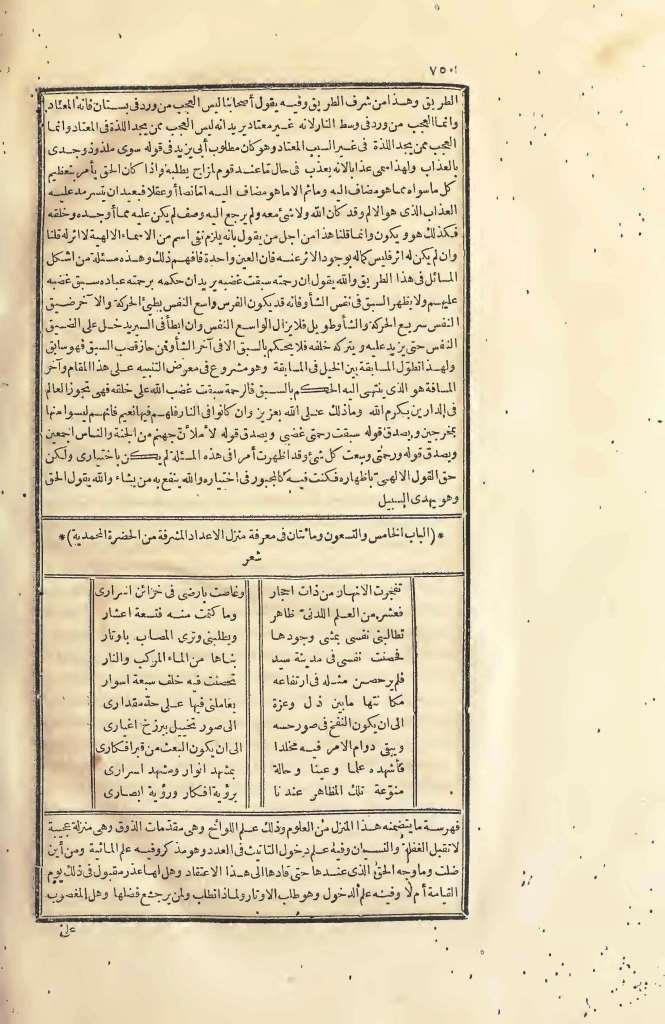 ٧٥٠
الطريق وهذا من شرف الطريق وفيه يقول أصحابنا ليس العجب من ورد فى بستان فانه المعتاد
وانما العجب من ورد فى وسط النار لانه غير معتاد يريد انه ليس العجب ممن يجد اللذة فى المعتاد وانما
العجب ممن يجد اللذة فى غير السبب المعتاد وهو كان مطلوب أبى يزيد فى قوله سوى ملذوذ وجدى
بالعذاب ولهذا سمى عذابا لانه يعذب فى حال ما عند قوم لمزاج يطلبه واذا كان الحق يأمر بتعظيم
كل ما سواه مما هو مضاف اليه وما ثم الا ما هو مضاف اليه اما نصا أو عقلا فبعيد ان يتسرمد عليه
العذاب الذى هو الالم وقد كان الله ولا شئ معه ولم يرجع اليه وصف لم يكن عليه مما أوجده وخلقه
فكذلك هو ويكون وانما قلنا هذا من اجل من يقول بانه يلزم نفى اسم من الاسماء الالهية لا اثر له قلنا
وان لم يكن له اثر فليس كماله بوجود الاثر عنه فان العين واحدة فافهم ذلك وهذه مسئلة من اشكل
المسائل فى هذا الطريق والله يقول ان رحمته سبقت غضبه يريد ان حكمه برحمته عباده سبق غضبه
عليهم ولا يظهر السبق فى نفس الشأو فانه قد يكون الفرس واسع النفس بطئ الحركة والآخر ضيق
النفس سريع الحركة والشأو طويل فلا يزال الواسع النفس وان ابطأ فى السير يدخل على الضيق
النفس حتى يزيد عليه ويتركه خلفه فلا يحكم بالسبق الا فى آخر الشأو فمن حاز قصب السبق فهو سابق
ولهذا تطول المسابقة بين الخيل فى المسابقة وهو مشروع فى معرض التنبيه على هذا المقام وآخر
المسافة هو الذى ينتهى اليه الحكم بالسبق فالرحمة سبقت غضب الله على خلقه فهى تحوز العالم
فى الدارين بكرم الله وما ذلك على الله بعزيز وان كانوا فى النار فلهم فيها نعيم فانهم ليسوا منها
بمخرجين ويصدق قوله سبقت رحمتى غضبى ويصدق قوله لأملأن جهنم من الجنة والناس اجمعين
ويصدق قوله ورحمتى وسعت كل شئ وقد اظهرت أمرا فى هذه المسئلة لم يكن باختيارى ولكن
حق القول الالهى باظهاره فكنت فيه كالمجبور فى اختياره والله ينفع به من يشاء والله يقول الحق
وهو يهدى السبيل
*(الباب الخامس والتسعون ومائتان فى معرفة منزل الاعداد المشرفة من الحضرة المحمدية)*
شعر
تفجرت الانهار من ذات احجار وغاصت بارضى فى خزائن اسرارى
فعشر من العلم اللدنى ظاهر وما كتمت منه فتسعة اعشار
تطالبنى نفسى بمثنى وجودها ويطلبنى وترى المصاب باوتار
فحصنت نفسى فى مدينة سيد بناها من الماء المركب والنار
فلم ير حصن مثله فى ارتفاعه تحصنت فيه خلف سبعة اسوار
مكانتها ما بين ذل وعزة يعاملنى فيها على حد مقدارى
الى ان يكون النفخ فى صور حسه الى صور تخييل ببرزخ اغيارى
ويبقى دوام الامر فيه مخلدا الى ان يكون البعث من قبر افكارى
فأشهده علما وعينا وحالة بمشهد انوار ومشهد اسرارى
منوعة تلك المظاهر عندنا برؤية افكار ورؤية ابصارى
فهرسة ما يتضمنه هذا المنزل من العلوم وذلك علم اللوائح وهى مقدمات الذوق وهى منزلة عجيبة
لا تقبل الغفلة والنسيان وفيه علم دخول التأنيث فى العدد وهو مذكر وفيه علم المانية ومن أين
ضلت وما وجه الحق الذى عندها حتى قادها الى هذا الاعتقاد وهل لها عذر مقبول فى ذلك يوم
القيامة أم لا وفيه علم الدخول وهو طلب الاوتار ولماذا تطلب ولمن يرجع فضلها وهل المغصوب
على